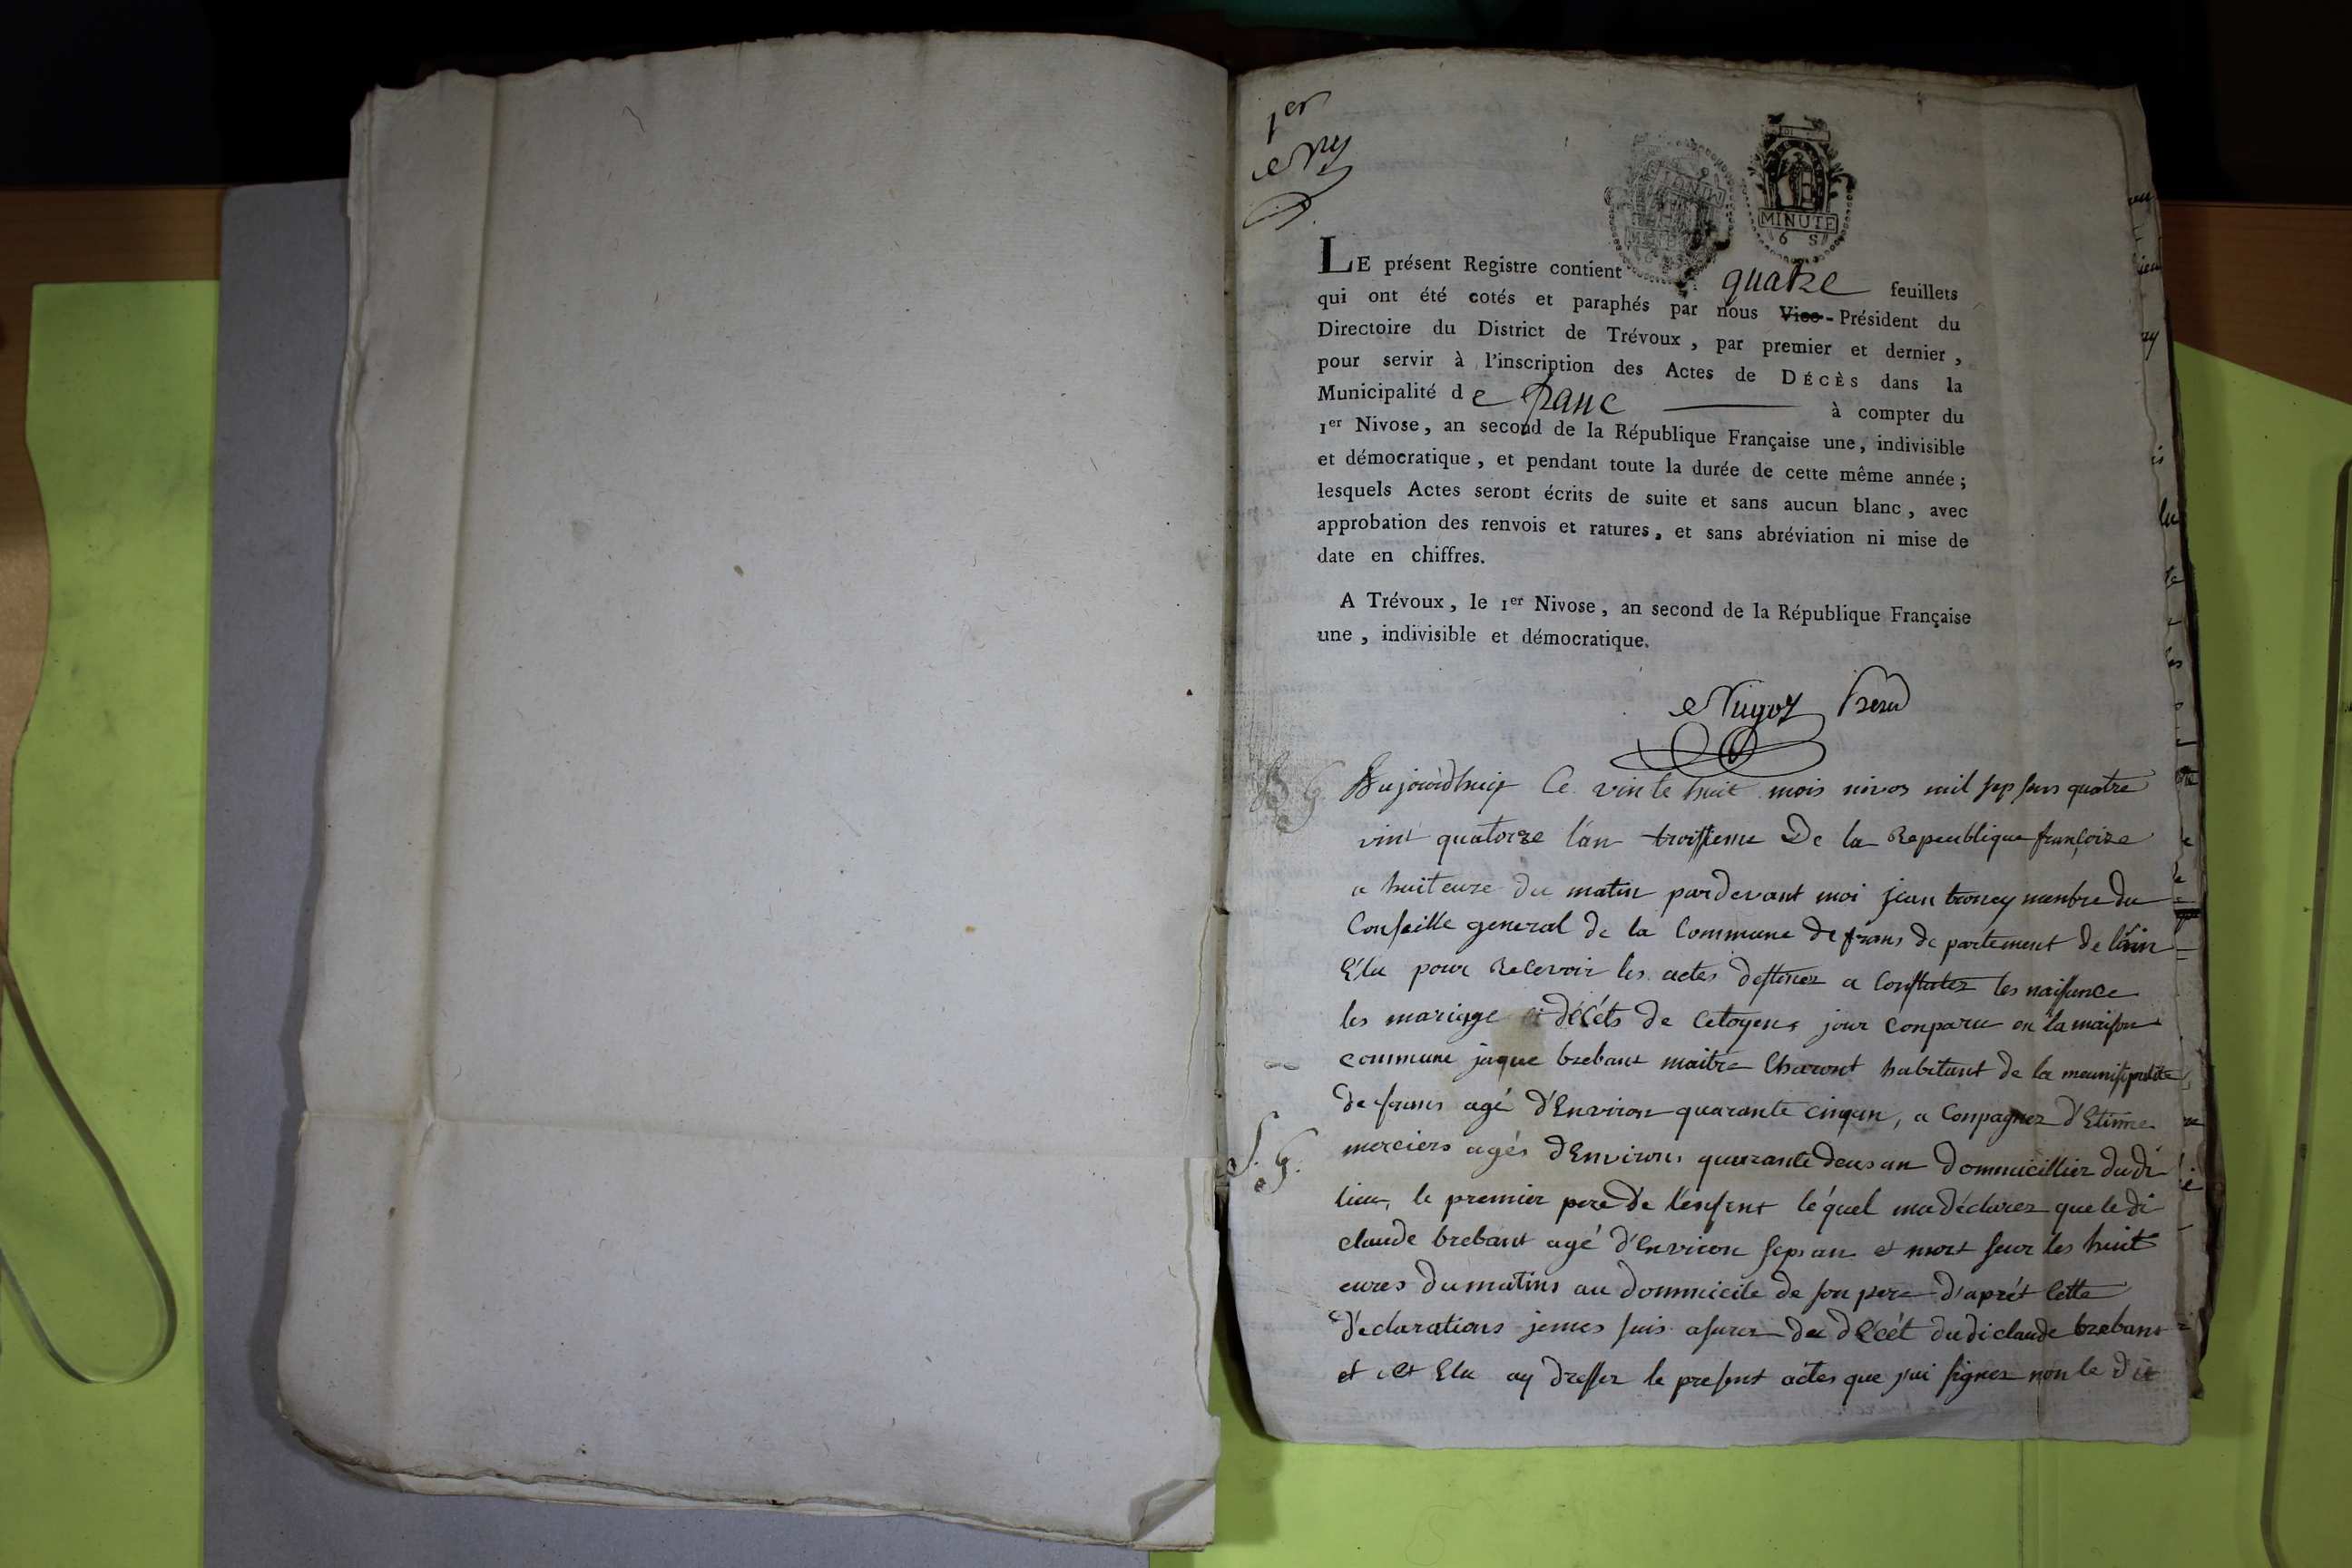 1er
MINUTE
6 S
LE présent Registre contient quatre feuillets
qui ont été cotés et paraphés par nous Vice-Président du
Directoire du District de Trévoux, par premier et dernier,
pour servir à l'inscription des Actes de DÉCÈS dans la
Municipalité de franc à compter du
1er Nivose, an second de la République Française une, indivisible
et démocratique, et pendant toute la durée de cette même année;
lesquels Actes seront écrits de suite et sans aucun blanc, avec
approbation des renvois et ratures, et sans abréviation ni mise de
date en chiffres.
A Trévoux, le 1er Nivose, an second de la République Française
une, indivisible et démocratique.
Aujourdhuij Ce vinte huit mois nivos mil sep sens quatre
vint quatorze l'an troissieme De la Republique françoize
a huit eure du matin pardevant moi jean menbre du
Conseille general de la Commune de frans de partement de l'ain
Élu pour Recevoir les actes destinez a Constatez les naissance
les mariage et décéts de Citoyens jour Conparu en la maison
commune jaque brebant maitre Charont habitant de la meunisipalité
de frans agé d'Environ quarante cinq an, a Conpagnez d'Etienne
merciers agés d'Environs quarante deus an Dommicillier dudi
lieu, le premier pere de l'enfent léquel ma déclarez que le di
claude brebant agé d'Environ sep an et mort seur les huit
eures du matins au dommicile de son pere d'aprét Cette
déclarations jemes suis asurez du décét du di claude brebant
et Elu ay dresser le present actes que j'ai signez non le dit
S. G.